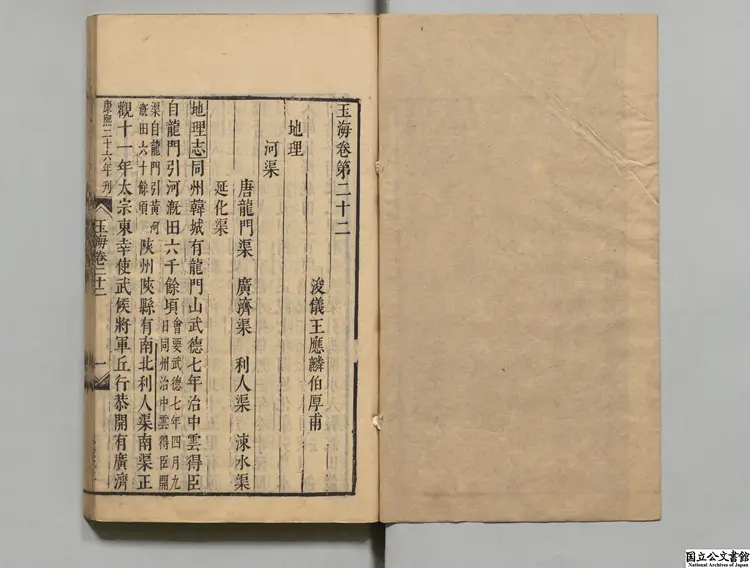 玉海卷第二十二
浚儀王應麟伯厚甫
地理
河渠
唐龍門渠 廣濟渠 利人渠 涑水渠
延化渠
地理志同州韓城有龍門山武德七年治中雲得臣
自龍門引河溉田六千餘頃會要武德七年四月九
日同州治中雲得臣開
渠自龍門引黃河
溉田六十餘頃陝州陝縣有南北利人渠南渠正
觀十一年太宗東幸使武候將軍丘行恭開有廣濟
康熙二十六年刋
玉海卷二十二
一
国立公文書館
National Archives of Japan